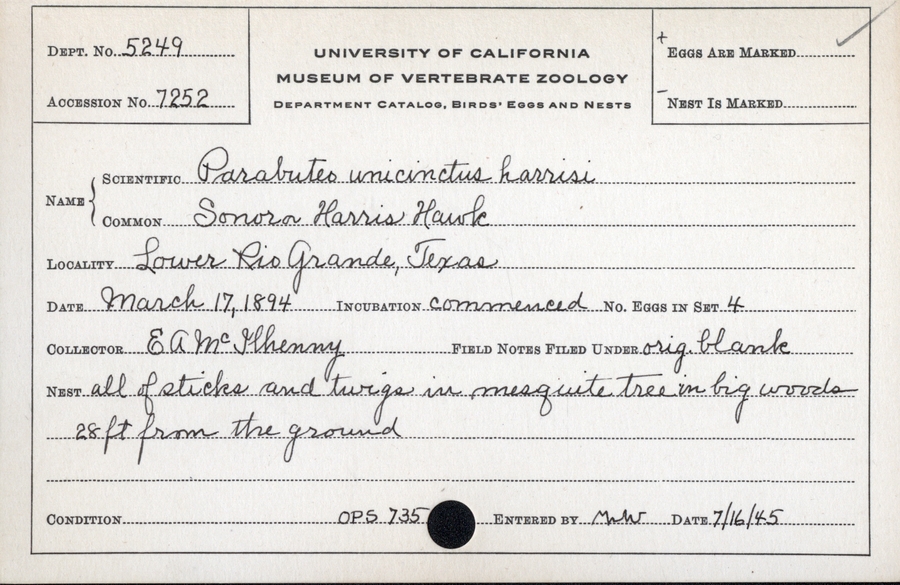 Dept. No. 5249
Accession No. 7252
UNIVERSITY OF CALIFORNIA
MUSEUM OF VERTEBRATE ZOOLOGY
Department Catalog, Birds' Eggs and Nests
+ Eggs Are Marked ✓
- Nest Is Marked
Name { Scientific Parabuteo unicinctus harrisi
Common Sonora Harris Hawk
Locality Lower Rio Grande, Texas
Date March 17, 1894 Incubation commenced No. Eggs in Set 4
Collector E A McIlhenny Field Notes Filed Under orig. blank
Nest all of sticks and twigs in mesquite tree in big woods
28 ft from the ground
Condition OPS 735 Entered by MW Date 7/16/45